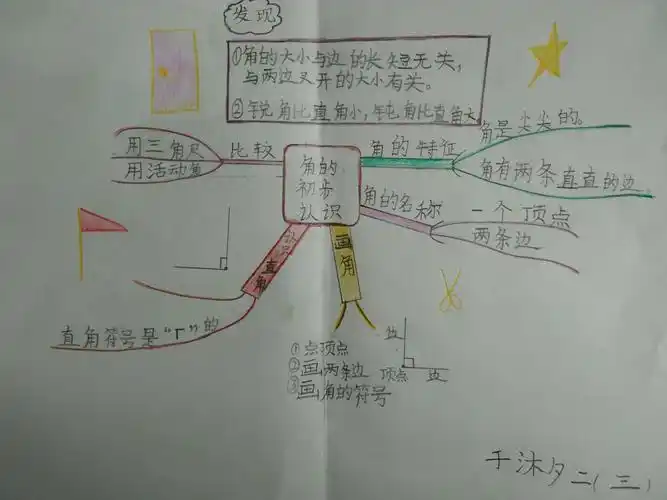 发现
①角的大小与边的长短无关,
与两边叉开的大小有关。
②锐角比直角小,钝角比直角大
角的
初步
认识
比较
用三角尺
用活动角
角的特征
角是尖尖的。
角有两条直直的边
角的名称
一个顶点
两条边
认识
直角
直角符号是“Γ”的
画角
①点顶点
②画两条边
③画角的符号
边
顶点 边
沐夕二(三)